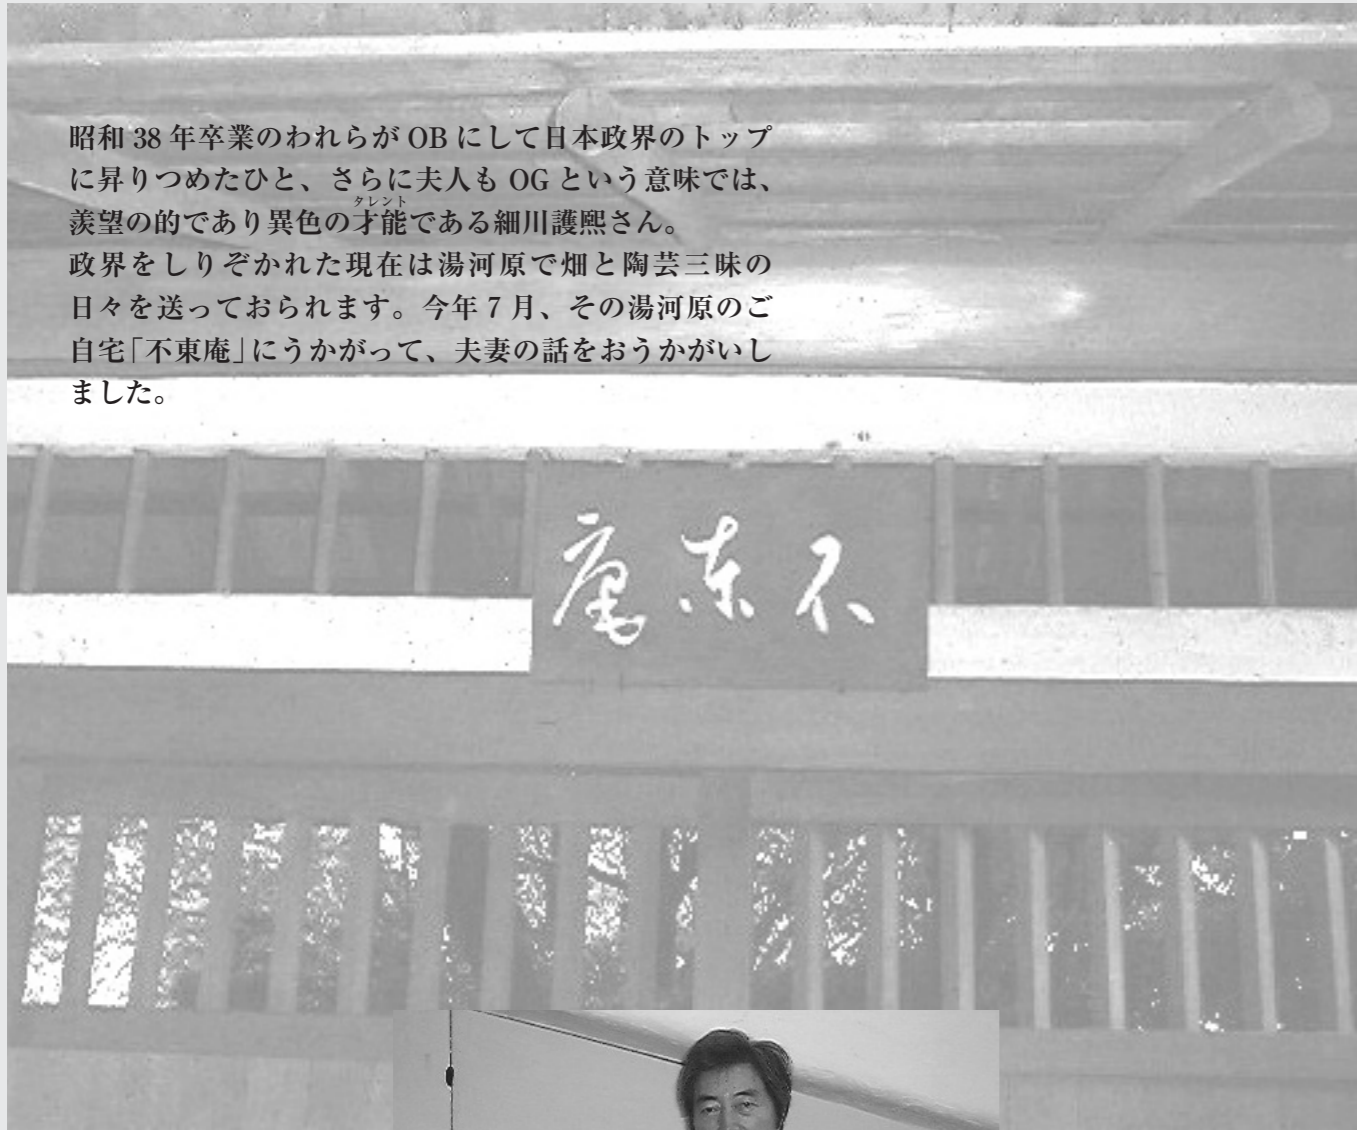 昭和 38 年卒業のわれらが OB にして日本政界のトップ
に昇りつめたひと、さらに夫人も OG という意味では、
タレント
羨望の的であり異色の才能である細川護熙さん。
政界をしりぞかれた現在は湯河原で畑と陶芸三昧の
日々を送っておられます。今年 7 月、その湯河原のご
自宅「不東庵」にうかがって、夫妻の話をおうかがいし
ました。
不東庵